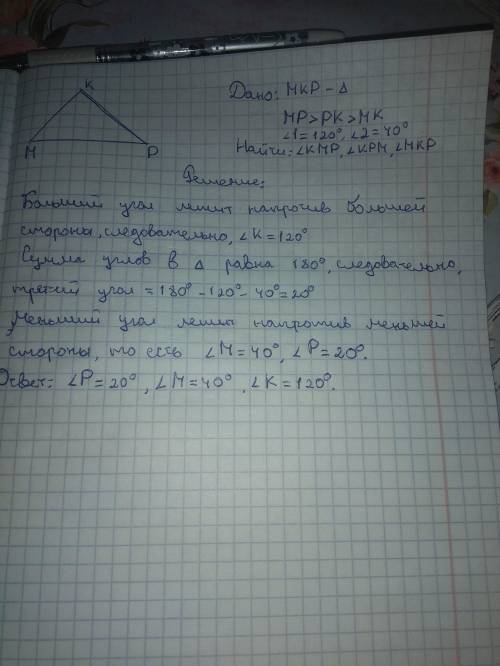 K
M
P
Дано: MKP - Δ
MP > PK > MK
∠1 = 120°, ∠2 = 40°
Найти: ∠KMP, ∠KPM, ∠MKP
Решение:
Больший угол лежит напротив большей
стороны, следовательно, ∠K = 120°
Сумма углов в Δ равна 180°, следовательно,
третий угол = 180° - 120° - 40° = 20°
Меньший угол лежит напротив меньшей
стороны, то есть ∠M = 40°, ∠P = 20°.
Ответ: ∠P = 20°, ∠M = 40°, ∠K = 120°.